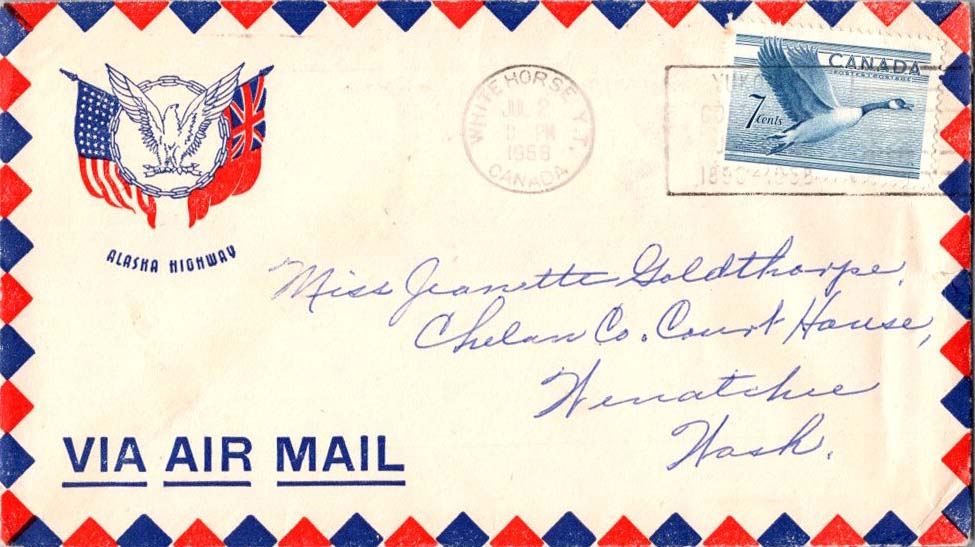 ALASKA HIGHWAY
WHITEHORSE Y.T.
JUL 2
PM
1958
CANADA
YUK
GO
1898-1958
CANADA
POSTES POSTAGE
7 cents
Miss Jeanette Goldthorpe,
Chelan Co. Court House,
Wenatchee
Wash.
VIA AIR MAIL